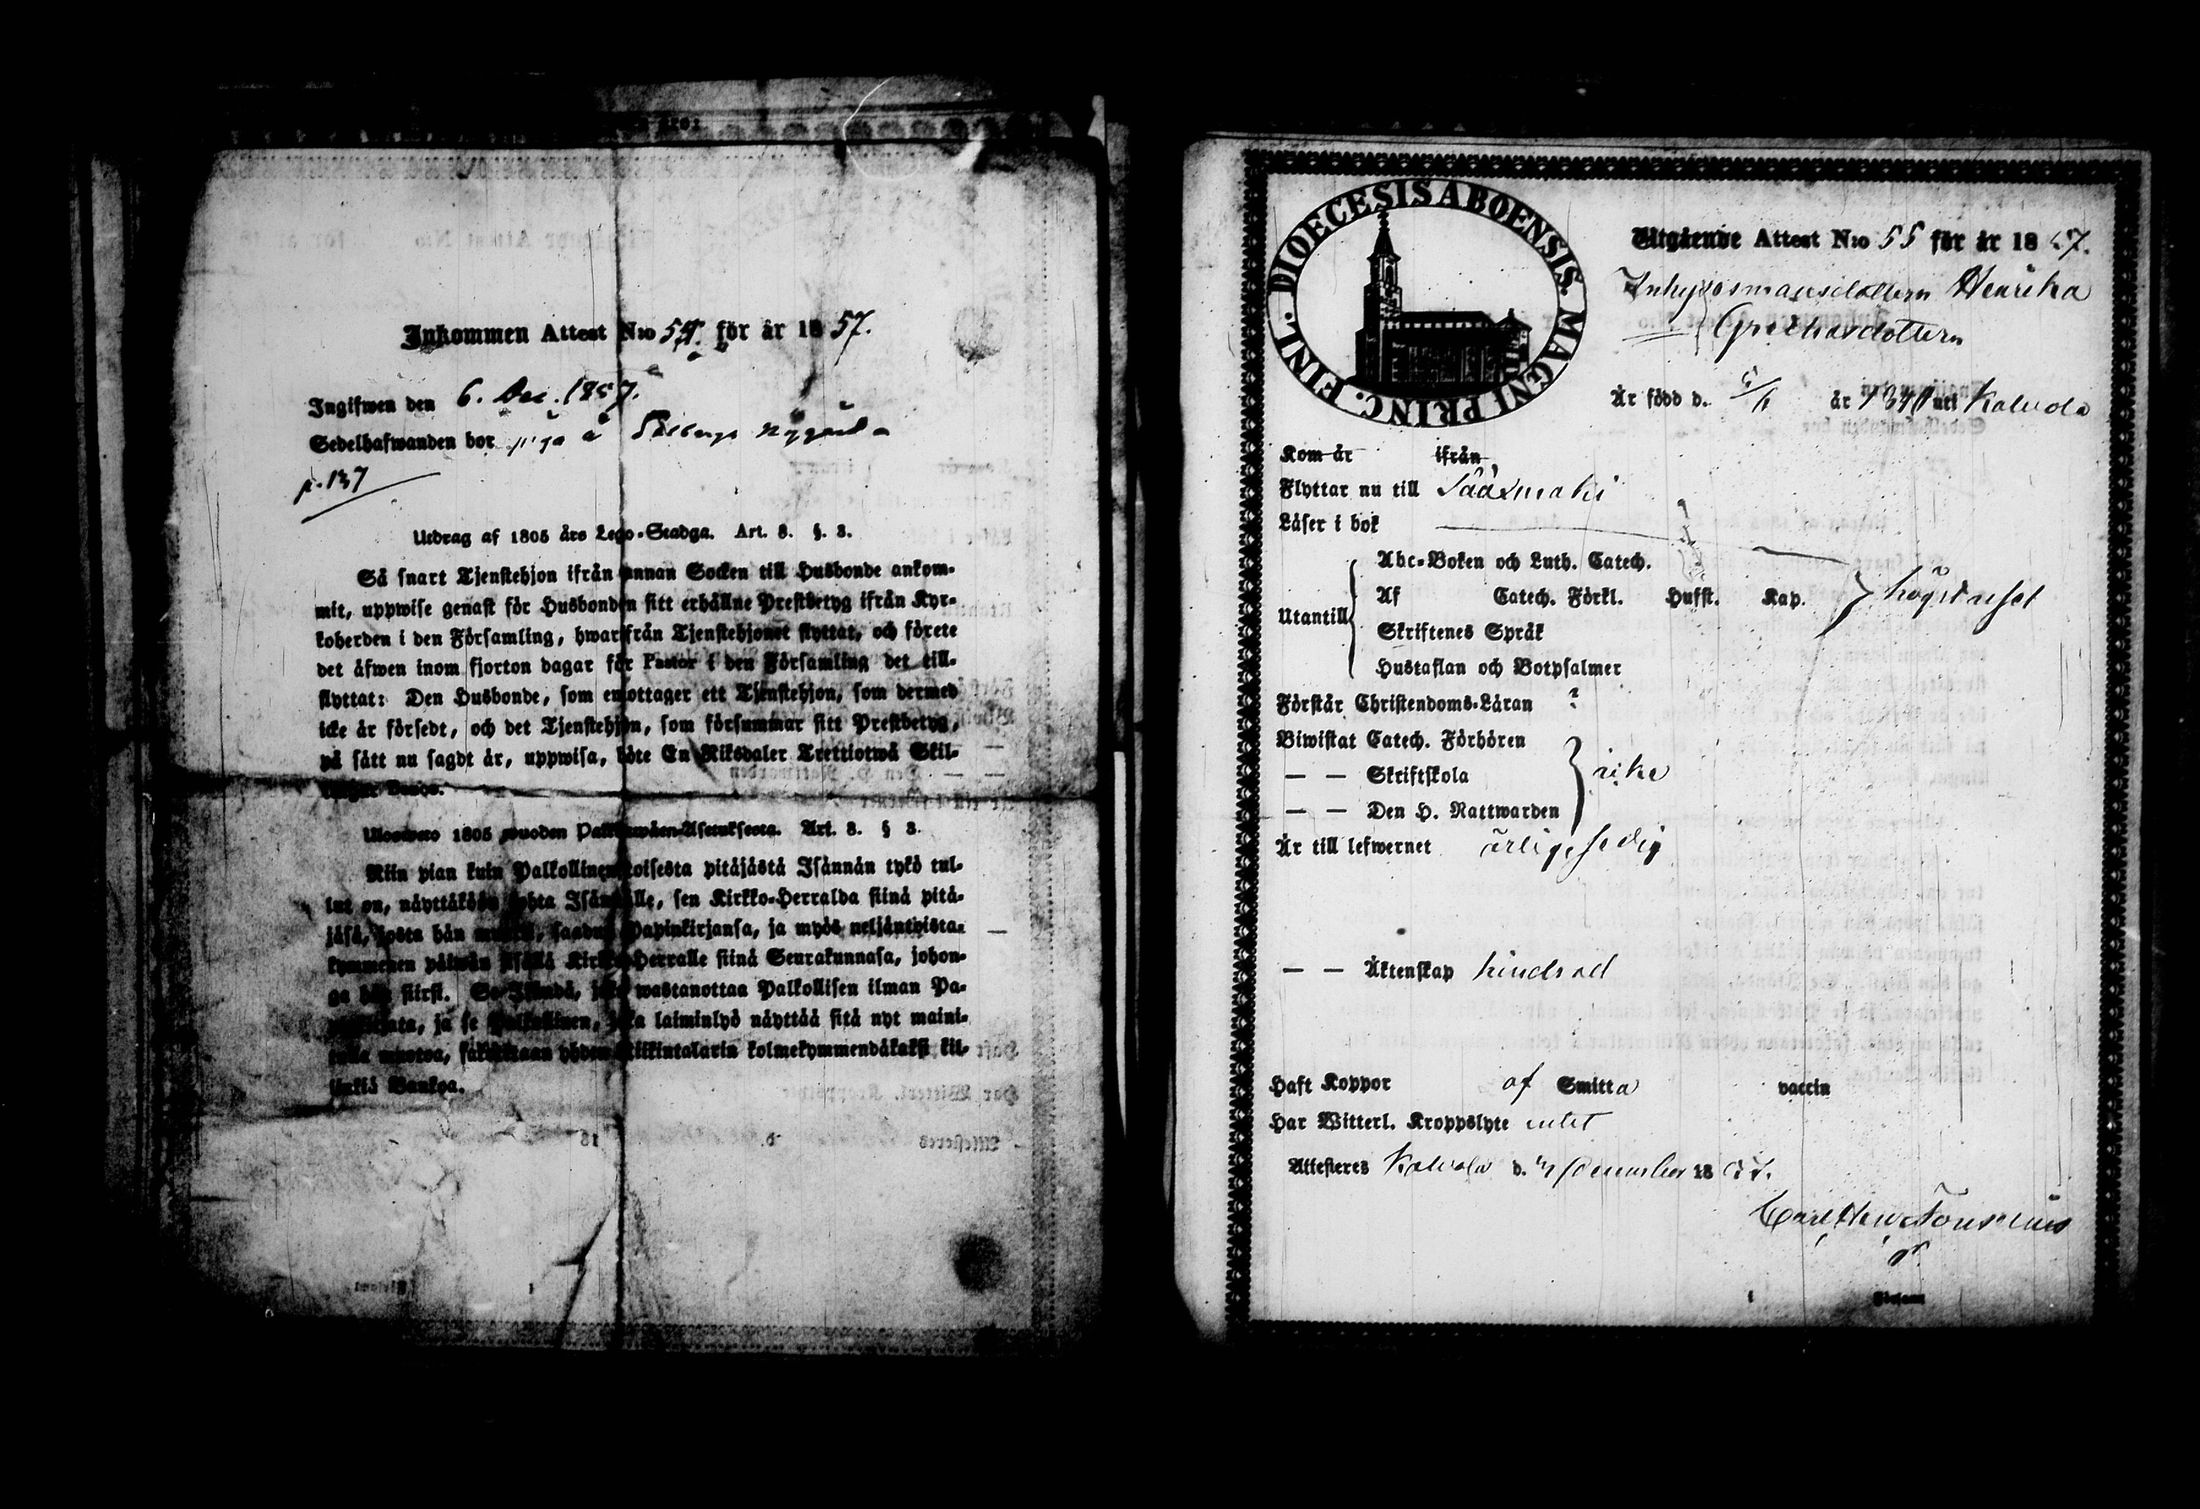 Inkommen Attest N:o 54. för år 1857.
Ingifwen den 6. Dec. 1857.
Sedelhafwanden bor piga å Nygård
p. 137
Utdrag af 1805 års Lego-Stadga. Art. 8. §. 3.
Så snart Tjenstehjon ifrån annan Socken till Husbonde ankom-
mit, uppwise genast för Husbonden sitt erhållne Prestbetyg ifrån Kyr-
koherden i den Församling, hwarifrån Tjenstehjonet flyttat, och förete
det äfwen inom fjorton dagar för Pastor i den Församling det till-
flyttat: Den Husbonde, som emottager ett Tjenstehjon, som dermed
icke är försedt, och det Tjenstehjon, som försummar sitt Prestbetyg,
på sätt nu sagdt är, uppwisa, böte En Riksdaler Trettiotwå Skil-
lingar Banco.
Ulosweto 1805 wuoden Palkkawäen-Asetuksesta. Art. 8. § 3.
Niin pian kuin Palkollinen toisesta pitäjästä Isännän tykö tul-
lut on, näyttäköön kohta Isännälle, sen Kirkko-Herralda siinä pitä-
jäsä, josta hän muutti, saadun Papinkirjansa, ja myös neljäntoista-
kymmenen päiwän sisällä Kirkko-Herralle siinä Seurakunnasa, johon-
ga hän siirsi. Se Isändä, joka wastanottaa Palkollisen ilman Pa-
pinkirjata, ja se Palkollinen, joka laiminlyö näyttää sitä nyt maini-
tulla muotoa, sakoitetaan yhden Riikintalarin kolmekymmendäkaksi kil-
lingiä Bankoa.
DIOECESIS ABOENSIS. MAGNI PRINC. FINL.
Utgående Attest N:o 55 för år 1857.
Inhysesmansdottern Henrika
dottern
Är född d. år uti Kalvola
Kom år ifrån
Flyttar nu till Sääxmäki
Läser i bok
Abc-Boken och Luth. Catech.
Utantill Af Catech. Förkl. Hufst. Kap.
Skriftenes Språk
Hustaflan och Botpsalmer
Förstår Christendoms-Läran ?
Biwistat Catech. Förhören
— — Skriftskola
— — Den H. Nattwarden
Är till lefwernet ärlig, sedig
— — Äktenskap hindsad
Haft Koppor af Smitta vaccin
Har Witterl. Kroppslyte intet
Attesteres Kalvola d. December 1857.
Carl